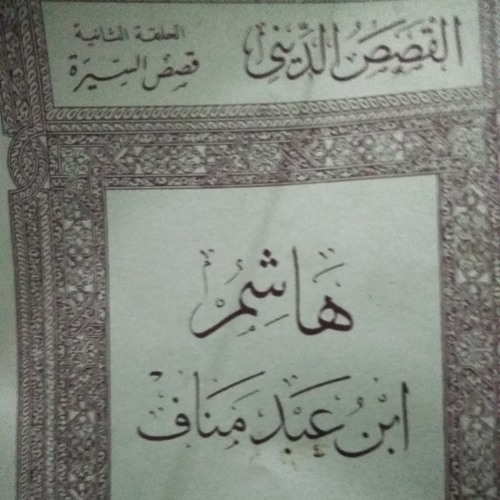 القصص الديني
الحلقة الثانية
قصص السيرة
هاشم
ابن عبد مناف